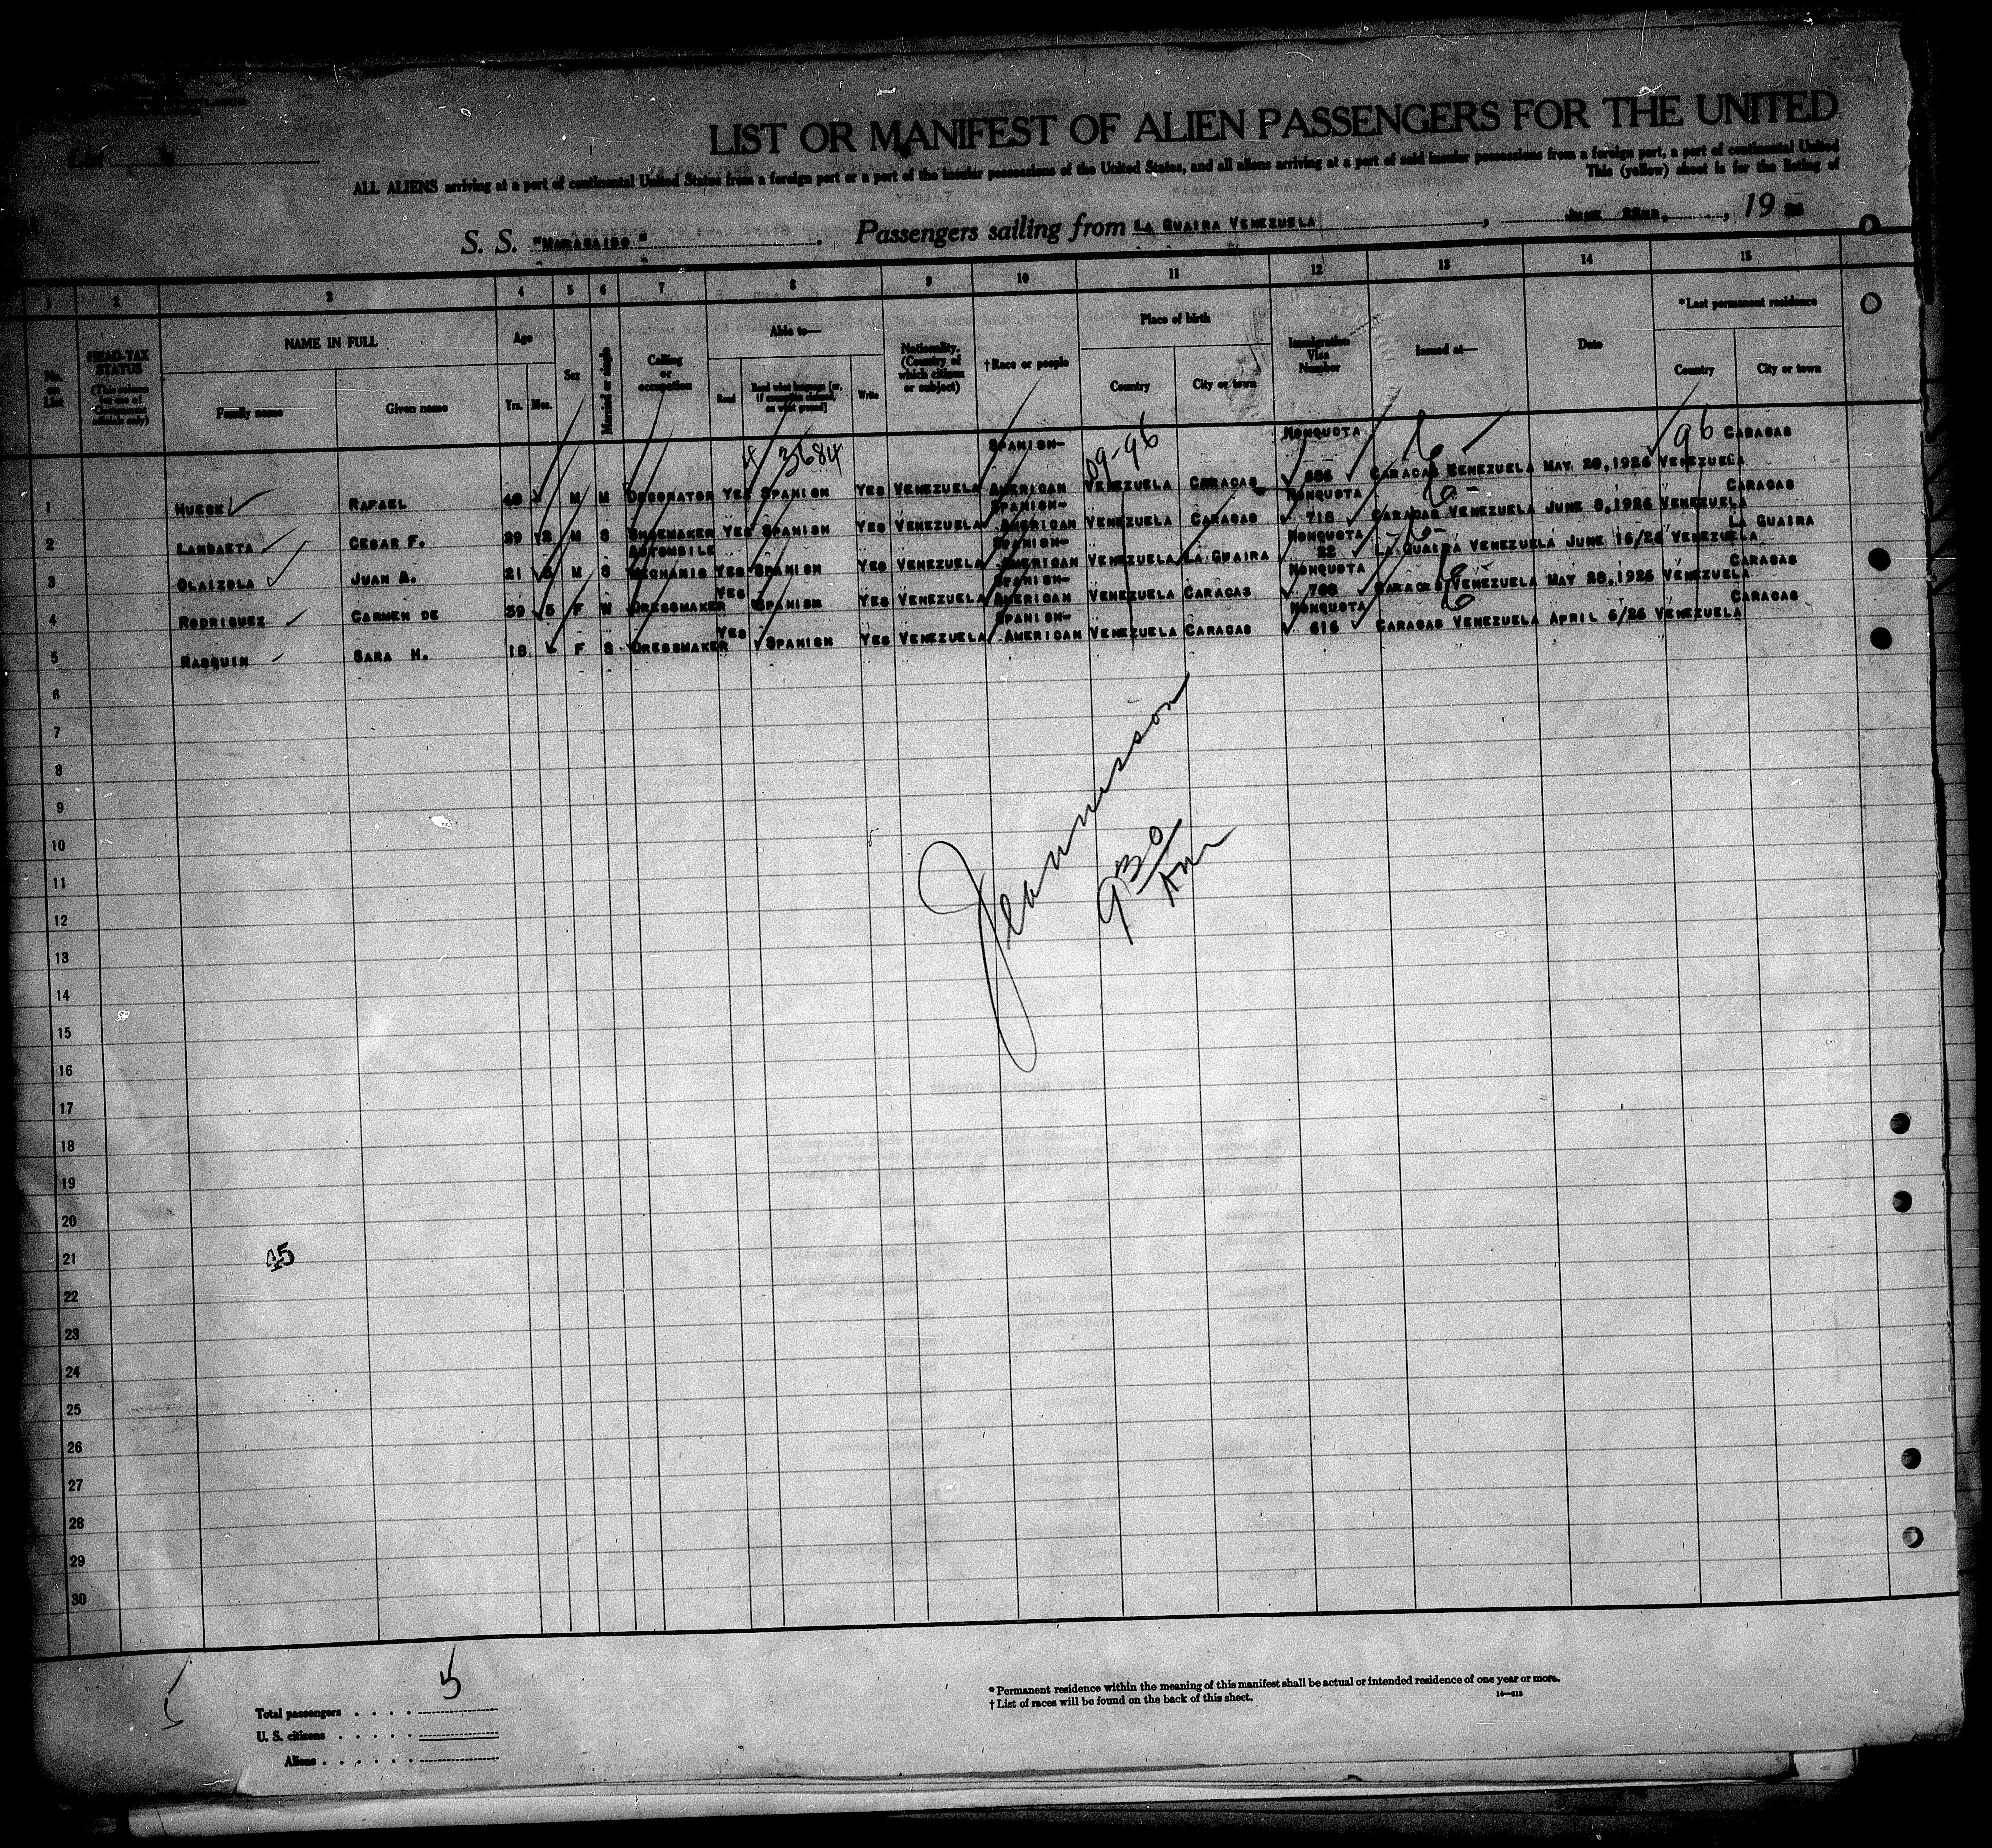 List
LIST OR MANIFEST OF ALIEN PASSENGERS FOR THE UNITED
ALL ALIENS arriving at a port of continental United States from a foreign port or a port of the insular possessions of the United States, and all aliens arriving at a port of said insular possessions from a foreign port, a port of continental United
This (yellow) sheet is for the listing of
S. S. "MARACAIBO" . Passengers sailing from LA GUAIRA VENEZUELA , JUNE 22ND, , 19 26
1 2 3 4 5 6 7 8 9 10 11 12 13 14 15
No. on List
HEAD-TAX STATUS (This column for use of Government officials only)
NAME IN FULL
Family name Given name
Age
Yrs. Mos.
Sex
Married or single
Calling or occupation
Able to—
Read Read what language [or, if exemption claimed, on what ground] Write
Nationality. (Country of which citizen or subject)
†Race or people
Place of birth
Country City or town
Immigration Visa Number
Issued at—
Date
*Last permanent residence
Country City or town
3684 09-96 96
1 RAFAEL 40 M M DECORATOR YES SPANISH YES VENEZUELA SPANISH-AMERICAN VENEZUELA CARACAS NONQUOTA CARACAS VENEZUELA MAY 28,1926 VENEZUELA CARACAS
2 LANDAETA CESAR F. 29 M S SHOEMAKER YES SPANISH YES VENEZUELA SPANISH-AMERICAN VENEZUELA CARACAS NONQUOTA 718 CARACAS VENEZUELA JUNE 8,1926 VENEZUELA CARACAS
3 OLAIZOLA JUAN A. 21 M S AUTOMBILE MECHANIC YES SPANISH YES VENEZUELA SPANISH-AMERICAN VENEZUELA LA GUAIRA NONQUOTA 22 LA GUAIRA VENEZUELA JUNE 16/26 VENEZUELA LA GUAIRA
4 RODRIGUEZ CARMEN DE 39 5 F W DRESSMAKER YES SPANISH YES VENEZUELA SPANISH-AMERICAN VENEZUELA CARACAS NONQUOTA CARACAS VENEZUELA MAY 28,1926 VENEZUELA CARACAS
5 RASQUIN SARA H. 18 F S DRESSMAKER YES SPANISH YES VENEZUELA SPANISH-AMERICAN VENEZUELA CARACAS NONQUOTA 616 CARACAS VENEZUELA APRIL 6/26 VENEZUELA CARACAS
6
7
8
9
10
11
12
13
14
15
16
17
18
19
20
21
22
23
24
25
26
27
28
29
30
9 30 Am
45
5
Total passengers
U. S. citizens
Aliens
* Permanent residence within the meaning of this manifest shall be actual or intended residence of one year or more.
† List of races will be found on the back of this sheet.
14—213